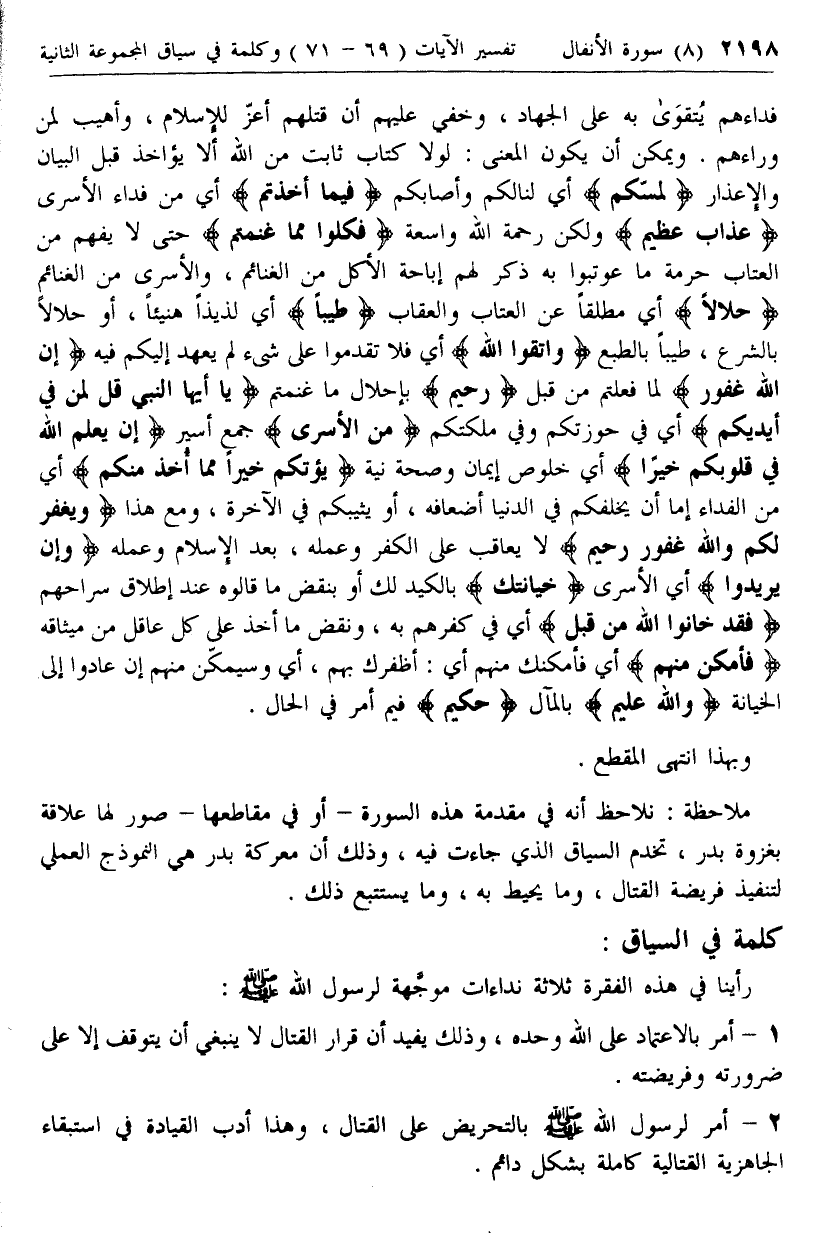 ٢١٩٨ (٨) سورة الأنفال تفسير الآيات ( ٦٩ - ٧١ ) وكلمة في سياق المجموعة الثانية
فداءهم يُتقوَىٰ به على الجهاد ، وخفي عليهم أن قتلهم أعزّ للإسلام ، وأهيب لمن
وراءهم . ويمكن أن يكون المعنى : لولا كتاب ثابت من الله ألا يؤاخذ قبل البيان
والإعذار ﴿ لمسّكم ﴾ أي لنالكم وأصابكم ﴿ فيما أخذتم ﴾ أي من فداء الأسرى
﴿ عذاب عظيم ﴾ ولكن رحمة الله واسعة ﴿ فكلوا مما غنمتم ﴾ حتى لا يفهم من
العتاب حرمة ما عوتبوا به ذكر لهم إباحة الأكل من الغنائم ، والأسرى من الغنائم
﴿ حلالاً ﴾ أي مطلقاً عن العتاب والعقاب ﴿ طيباً ﴾ أي لذيذاً هنيئاً ، أو حلالاً
بالشرع ، طيباً بالطبع ﴿ واتقوا الله ﴾ أي فلا تقدموا على شىء لم يعهد إليكم فيه ﴿ إن
الله غفور ﴾ لما فعلتم من قبل ﴿ رحيم ﴾ بإحلال ما غنمتم ﴿ يا أيها النبي قل لمن في
أيديكم ﴾ أي في حوزتكم وفي ملكتكم ﴿ من الأسرى ﴾ جمع أسير ﴿ إن يعلم الله
في قلوبكم خيرًا ﴾ أي خلوص إيمان وصحة نية ﴿ يؤتكم خيراً مما أُخذ منكم ﴾ أي
من الفداء إما أن يخلفكم في الدنيا أضعافه ، أو يثيبكم في الآخرة ، ومع هذا ﴿ ويغفر
لكم والله غفور رحيم ﴾ لا يعاقب على الكفر وعمله ، بعد الإسلام وعمله ﴿ وإن
يريدوا ﴾ أي الأسرى ﴿ خيانتك ﴾ بالكيد لك أو بنقض ما قالوه عند إطلاق سراحهم
﴿ فقد خانوا الله من قبل ﴾ أي في كفرهم به ، ونقض ما أخذ على كل عاقل من ميثاقه
﴿ فأمكن منهم ﴾ أي فأمكنك منهم أي : أظفرك بهم ، أي وسيمكّن منهم إن عادوا إلى
الخيانة ﴿ والله عليم ﴾ بالمآل ﴿ حكيم ﴾ فيم أمر في الحال .
وبهذا انتهى المقطع .
ملاحظة : نلاحظ أنه في مقدمة هذه السورة – أو في مقاطعها – صور لها علاقة
بغزوة بدر ، تخدم السياق الذي جاءت فيه ، وذلك أن معركة بدر هي النموذج العملي
لتنفيذ فريضة القتال ، وما يحيط به ، وما يستتبع ذلك .
كلمة في السياق :
رأينا في هذه الفقرة ثلاثة نداءات موجَّهة لرسول الله ﷺ :
١ – أمر بالاعتماد على الله وحده ، وذلك يفيد أن قرار القتال لا ينبغي أن يتوقف إلا على
ضرورته وفريضته .
٢ – أمر لرسول الله ﷺ بالتحريض على القتال ، وهذا أدب القيادة في استبقاء
الجاهزية القتالية كاملة بشكل دائم .